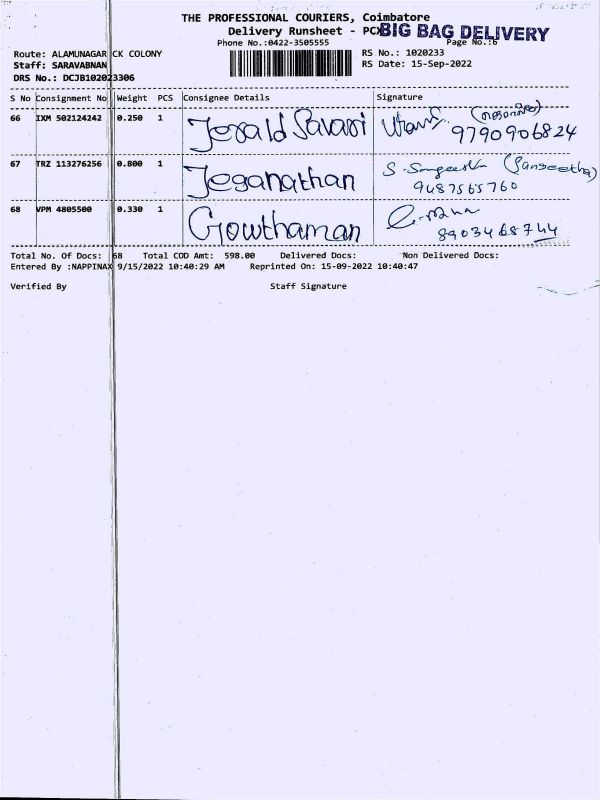 THE PROFESSIONAL COURIERS, Coimbatore
Delivery Runsheet - PCX BIG BAG DELIVERY
Phone No.:0422-3505555 Page No.:6
Route: ALAMUNAGAR CK COLONY RS No.: 1020233
Staff: SARAVABNAN RS Date: 15-Sep-2022
DRS No.: DCJB102023306
S No Consignment No Weight PCS Consignee Details Signature
66 IXM 502124242 0.250 1 Jerald Savari
9790906824
67 TRZ 113276256 0.800 1 Jeganathan S. Sangeetha (Sangeetha)
9487565760
68 VPM 4805500 0.330 1 Gowthaman
8903468744
Total No. Of Docs: 68 Total COD Amt: 598.00 Delivered Docs: Non Delivered Docs:
Entered By :NAPPINAX 9/15/2022 10:40:29 AM Reprinted On: 15-09-2022 10:40:47
Verified By Staff Signature